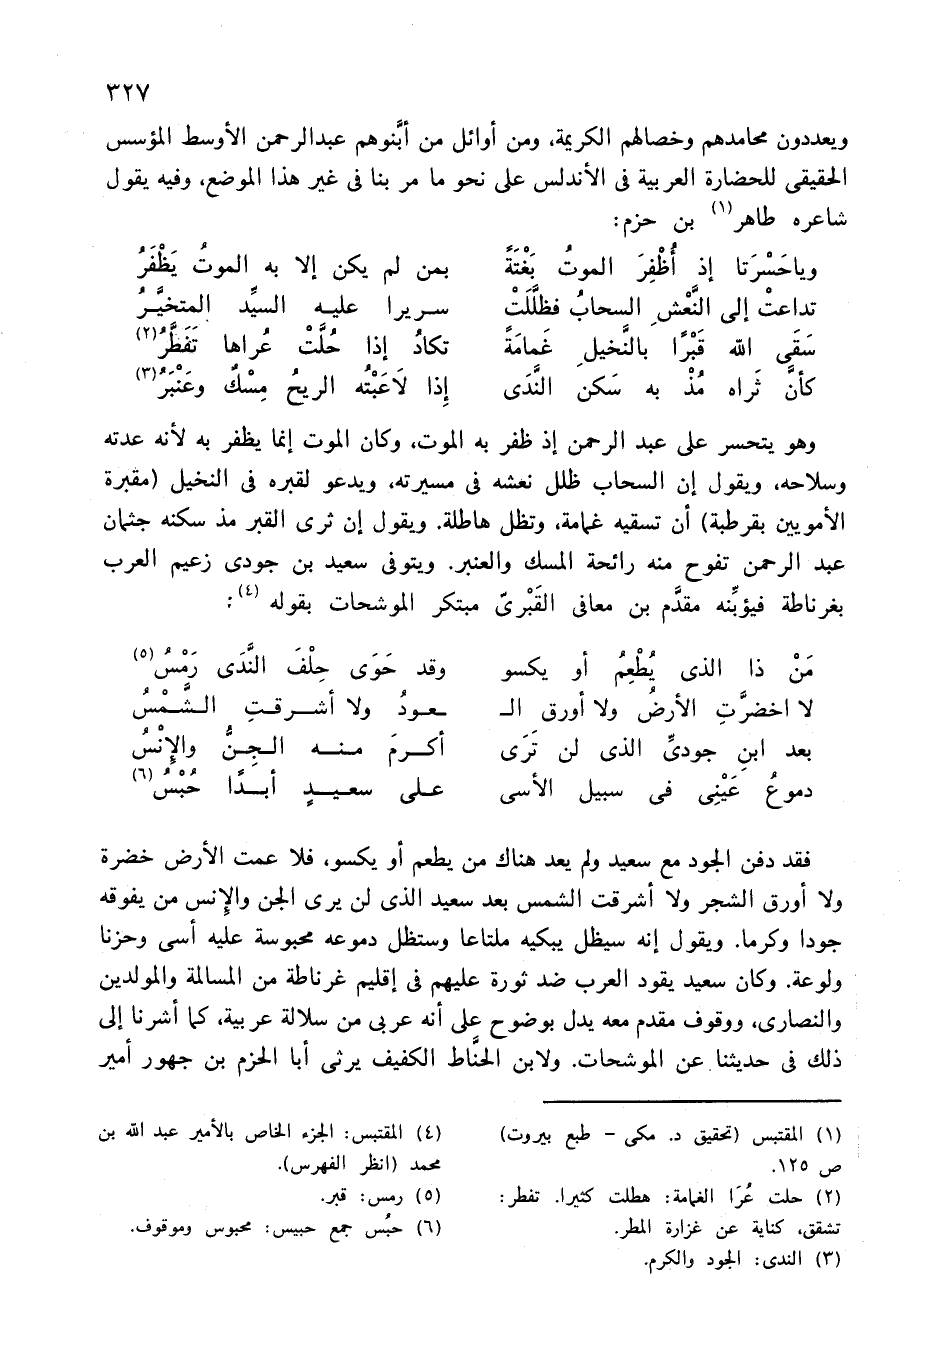 ٣٢٧
ويعددون محامدهم وخصالهم الكريمة، ومن أوائل من أبَّنوهم عبدالرحمن الأوسط المؤسس
الحقيقى للحضارة العربية فى الأندلس على نحو ما مر بنا فى غير هذا الموضع، وفيه يقول
شاعره طاهر(١) بن حزم:
وياحَسْرَتا إذ أُظْفِرَ الموتُ بَغْتَةً بمن لم يكن إلا به الموتُ يَظْفَرُ
تداعتْ إلى النَّعْشِ السحابُ فظلَّلَتْ سريرا عليه السيِّد المتخيَّرُ
سَقَى الله قَبْرًا بالنَّخيلِ غَمامَةً تكادُ إذا حُلَّتْ عُراها تَفَطَّرُ(٢)
كأنَّ ثَراه مُذْ به سَكن النَّدَى إذا لَاعَبْته الريحُ مِسْكٌ وعَنْبَرُ(٣)
وهو يتحسر على عبد الرحمن إذ ظفر به الموت، وكان الموت إنما يظفر به لأنه عدته
وسلاحه، ويقول إن السحاب ظلل نعشه فى مسيرته، ويدعو لقبره فى النخيل (مقبرة
الأمويين بقرطبة) أن تسقيه غمامة، وتظل هاطلة. ويقول إن ثرى القبر مذ سكنه جثمان
عبد الرحمن تفوح منه رائحة المسك والعنبر. ويتوفى سعيد بن جودى زعيم العرب
بغرناطة فيؤبِّنه مقدَّم بن معافى القَبْرىّ مبتكر الموشحات بقوله (٤):
مَنْ ذا الذى يُطْعِمُ أو يكسو وقد حَوَى حِلْفَ النَّدَى رَمْسُ(٥)
لا اخضرَّتِ الأرضُ ولا أورق الـ ـعودُ ولا أشرقتِ الشَّمْسُ
بعد ابنِ جودىِّ الذى لن تَرَى أكرمَ منه الجنُّ والإنْسُ
دموعُ عَيْنِى فى سبيل الأسى على سعيدٍ أبدًا حُبْسُ(٦)
فقد دفن الجود مع سعيد ولم يعد هناك من يطعم أو يكسو، فلا عمت الأرض خضرة
ولا أورق الشجر ولا أشرقت الشمس بعد سعيد الذى لن يرى الجن والإنس من يفوقه
جودا وكرما. ويقول إنه سيظل يبكيه ملتاعا وستظل دموعه محبوسة عليه أسى وحزنا
ولوعة. وكان سعيد يقود العرب ضد ثورة عليهم فى إقليم غرناطة من المسالمة والمولدين
والنصارى، ووقوف مقدم معه يدل بوضوح على أنه عربى من سلالة عربية، كما أشرنا إلى
ذلك فى حديثنا عن الموشحات. ولابن الحنَّاط الكفيف يرثى أبا الحزم بن جهور أمير
(١) المقتبس (تحقيق د. مكى – طبع بيروت)
ص ١٢٥.
(٢) حلت عُرَا الغمامة: هطلت كثيرا. تفطر:
تشقق، كناية عن غزارة المطر.
(٣) الندى: الجود والكرم.
(٤) المقتبس: الجزء الخاص بالأمير عبد الله بن
محمد (انظر الفهرس).
(٥) رمس: قبر.
(٦) حبُس جمع حبيس: محبوس وموقوف.